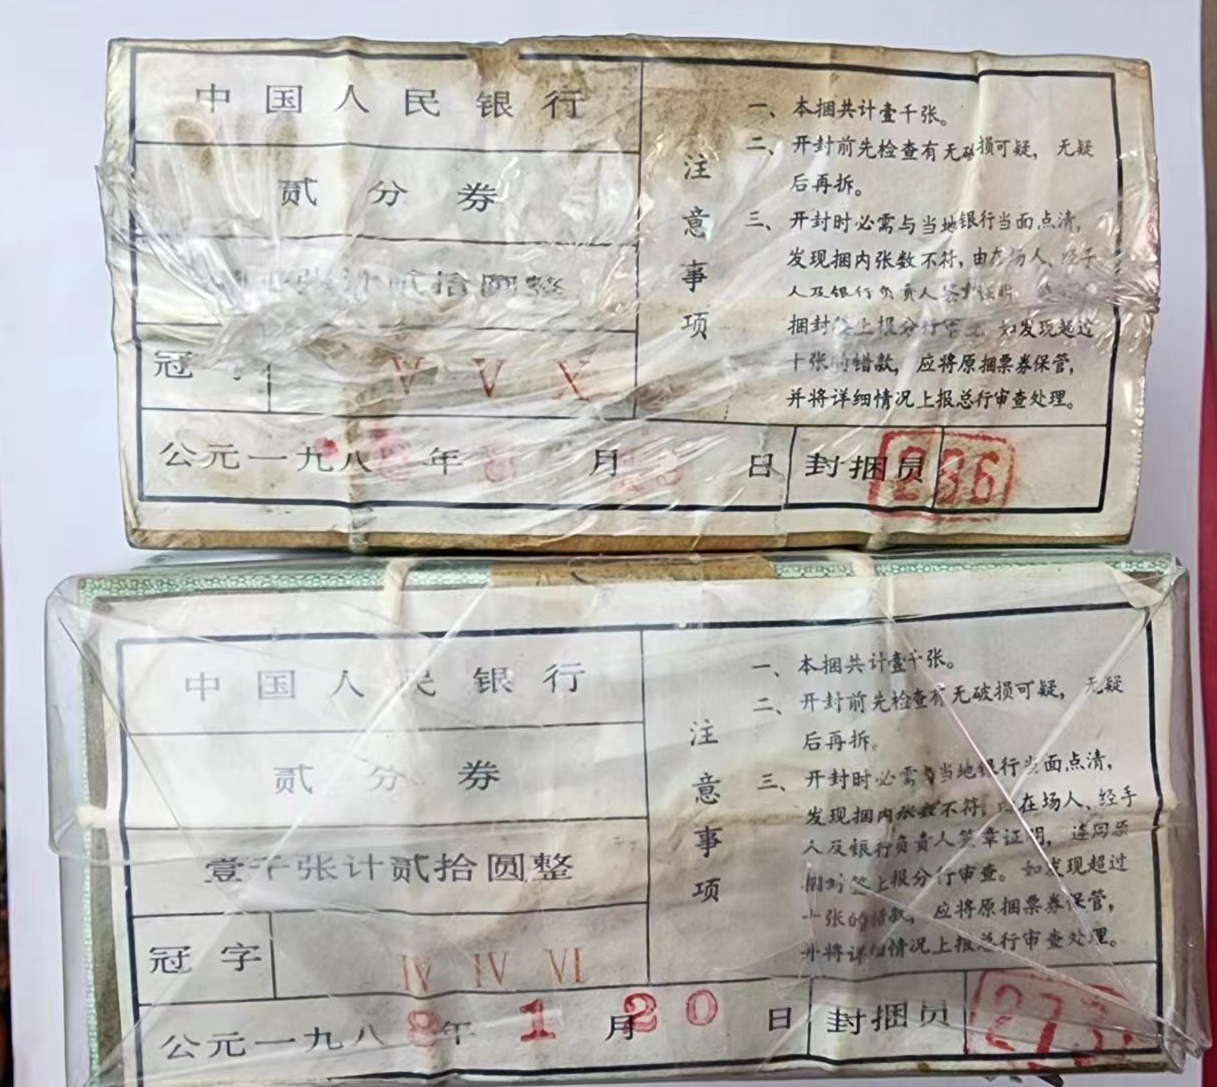 中国人民银行
贰分券
张计贰拾圆整
冠字
V V X
公元一九八8年8月 日
封捆员
236
注意事项
一、本捆共计壹千张。
二、开封前先检查有无破损可疑，无疑
后再拆。
三、开封时必需与当地银行当面点清，
发现捆内张数不符，由在场人、经手
人及银行负责人签章证明，
捆封签上报分行审查。如发现超过
十张的错款，应将原捆票券保管，
并将详细情况上报总行审查处理。
中国人民银行
贰分券
壹千张计贰拾圆整
冠字
IV IV VI
公元一九八8年1月20日
封捆员
273
注意事项
一、本捆共计壹千张。
二、开封前先检查有无破损可疑，无疑
后再拆。
三、开封时必需与当地银行当面点清，
发现捆内张数不符，由在场人、经手
人及银行负责人签章证明，连同原
捆封签上报分行审查。如发现超过
十张的错款，应将原捆票券保管，
并将详细情况上报总行审查处理。